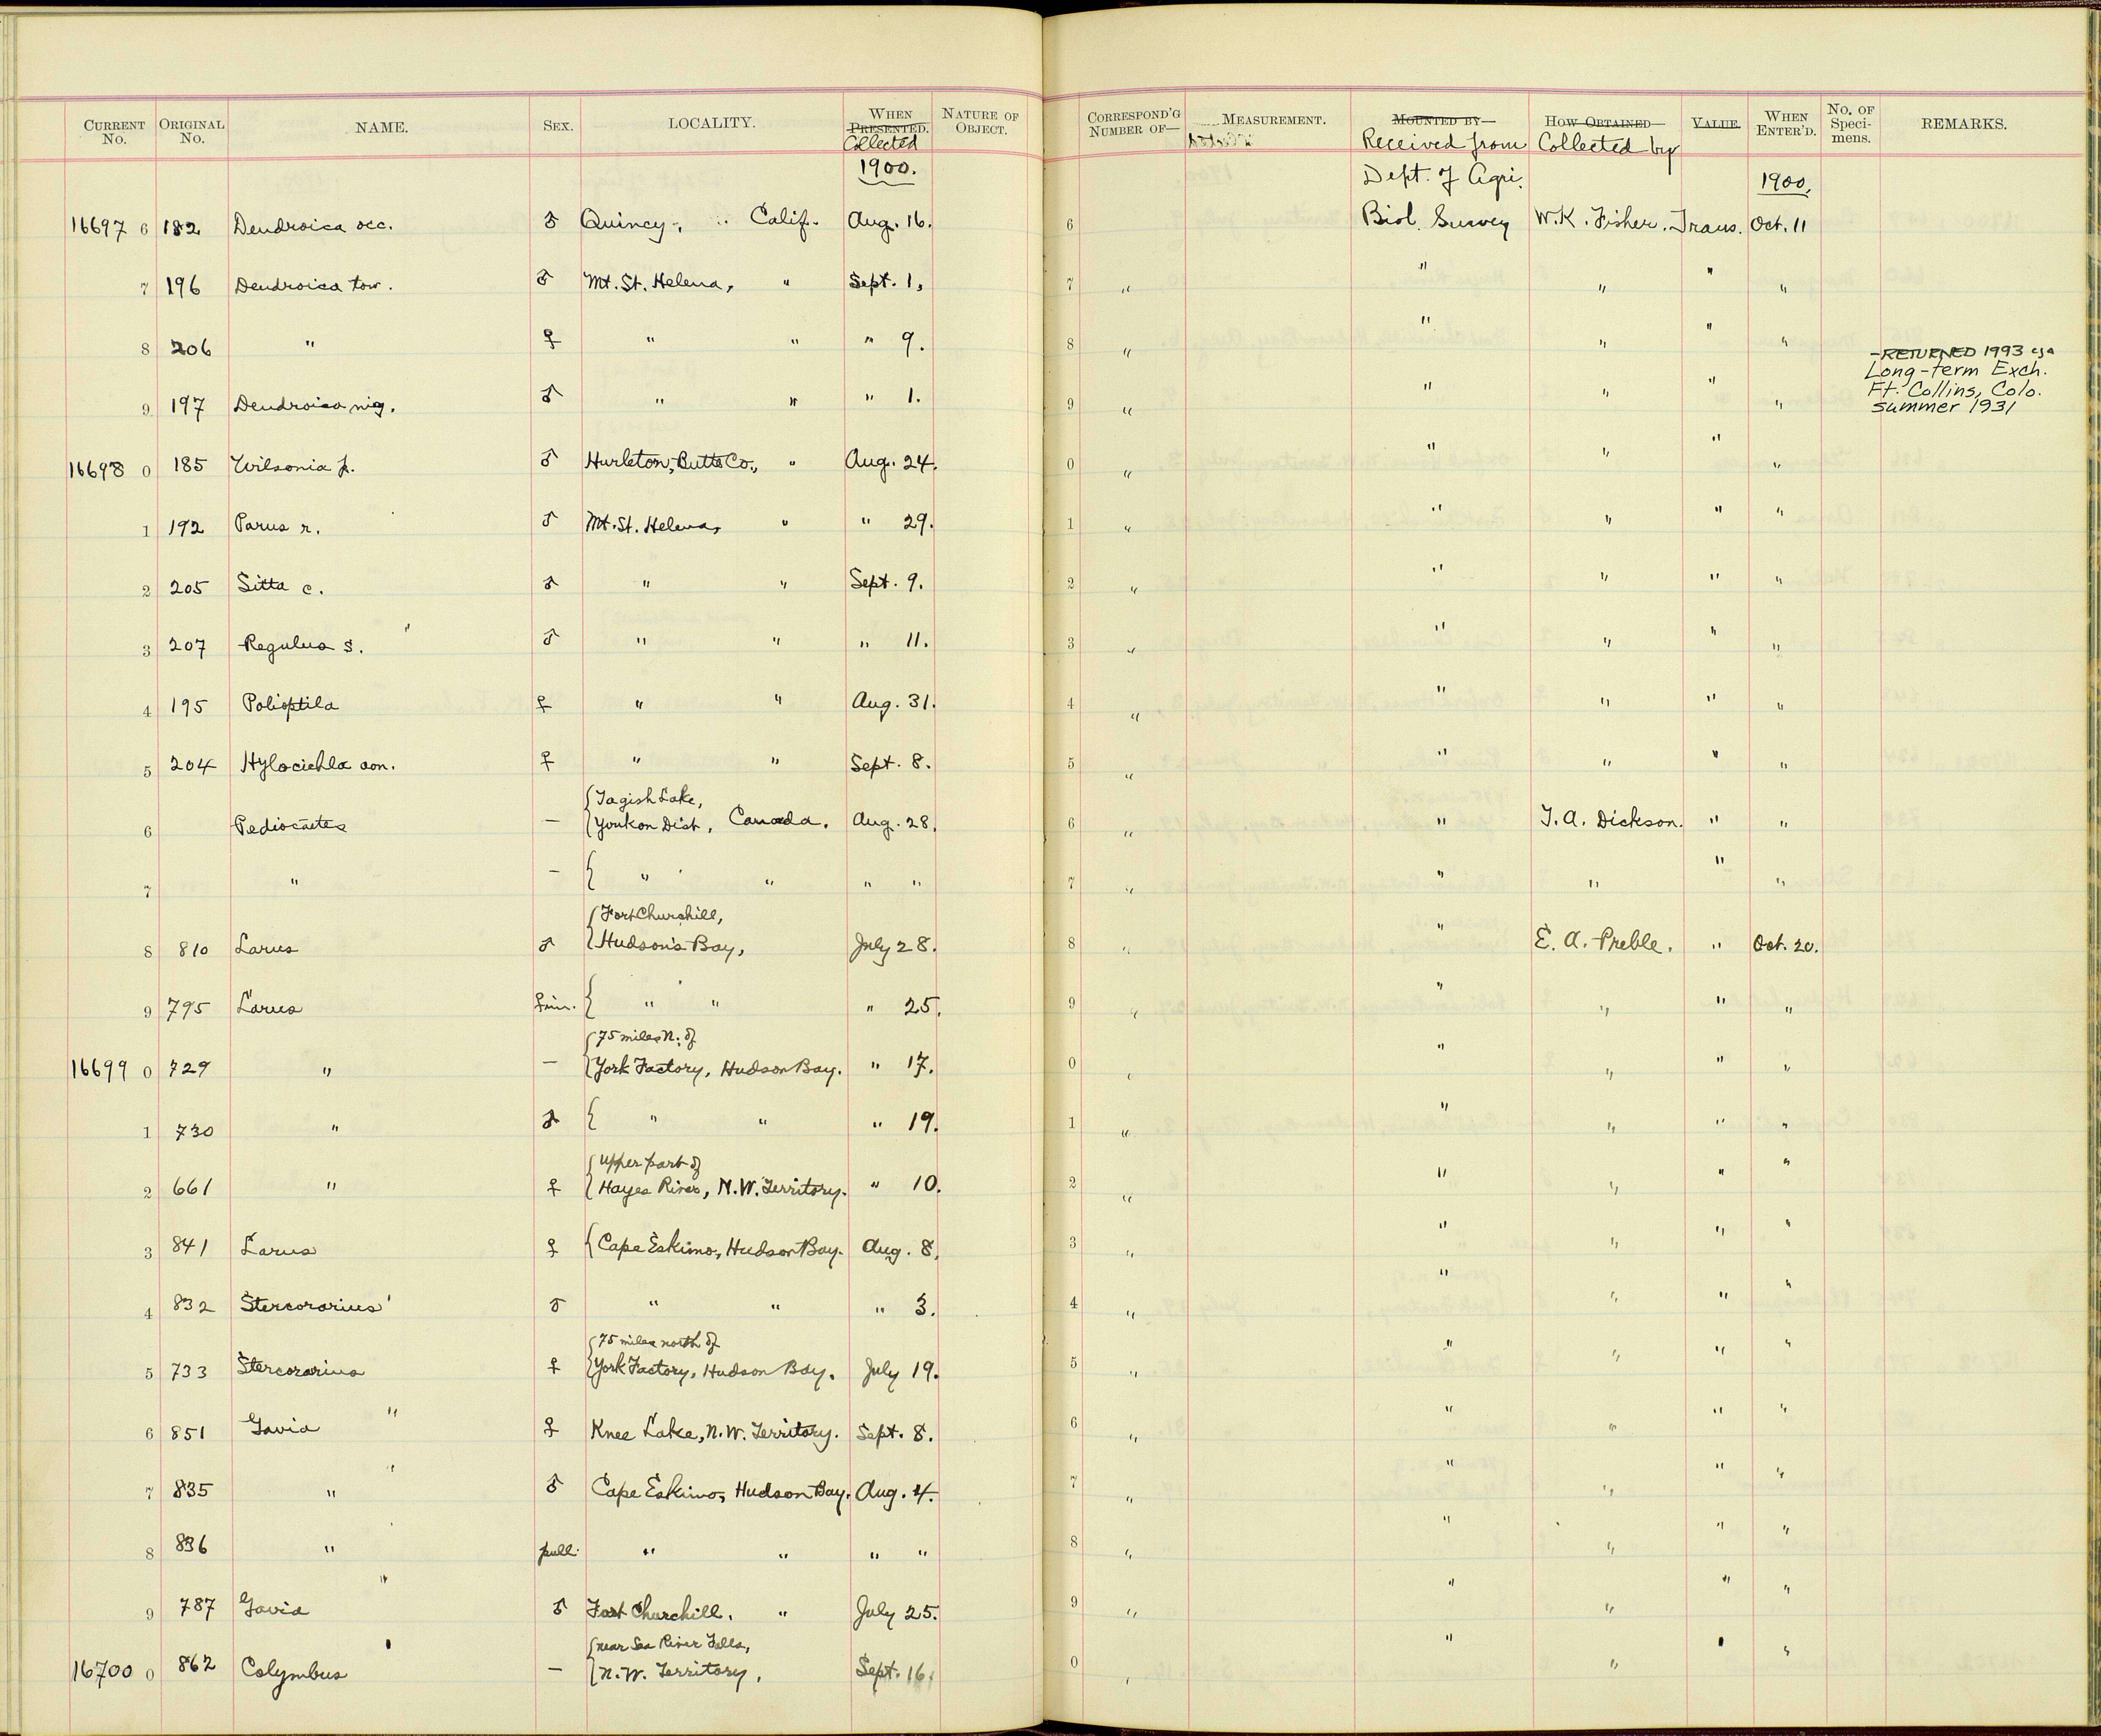 CURRENT No. ORIGINAL No. NAME. SEX. LOCALITY. WHEN PRESENTED. Collected NATURE OF OBJECT. CORRESPOND'G NUMBER OF— MEASUREMENT. MOUNTED BY— Received from HOW OBTAINED— Collected by VALUE. WHEN ENTER'D. No. OF Specimens. REMARKS.
1900. Dept. of Agri. 1900.
16697 6 182 Dendroica occ. ♂ Quincy, Calif. Aug. 16. 6 Biol. Survey W.K. Fisher. Trans. Oct. 11
7 196 Dendroica tow. ♂ Mt. St. Helena, " Sept. 1, 7 " " " " "
8 206 " ♀ " " " 9. 8 " " " " "
9 197 Dendroica nig. ♂ " " " 1. 9 " " " " " -RETURNED 1993
Long-term Exch.
Ft. Collins, Colo.
summer 1931
16698 0 185 Wilsonia p. ♂ Hurleton, Butte Co., " Aug. 24. 0 " " " " "
1 192 Parus r. ♂ Mt. St. Helena, " " 29. 1 " " " " "
2 205 Sitta c. ♂ " " Sept. 9. 2 " " " " "
3 207 Regulus s. ♂ " " " 11. 3 " " " " "
4 195 Polioptila ♀ " " Aug. 31. 4 " " " " "
5 204 Hylocichla aon. ♀ " " Sept. 8. 5 " " " " "
6 Pediocaetes — {Tagish Lake,
Youkon Dist, Canada. Aug. 28. 6 " " T. A. Dickson. " "
7 " — { " " " " 7 " " " " "
8 810 Larus ♂ {Fort Churchill,
Hudson's Bay, July 28. 8 " " E. A. Preble. " Oct. 20.
9 795 Larus ♀ im. { " " " 25. 9 " " " " "
16699 0 729 " — {75 miles N. of
York Factory, Hudson Bay. " 17. 0 " " " " "
1 730 " ♂ { " " " 19. 1 " " " " "
2 661 " ♀ {Upper part of
Hayes River, N.W. Territory. " 10. 2 " " " " "
3 841 Larus ♀ {Cape Eskimo, Hudson Bay. Aug. 8. 3 " " " " "
4 832 Stercorarius ♂ " " " 3. 4 " " " " "
5 733 Stercorarius ♀ {75 miles north of
York Factory, Hudson Bay. July 19. 5 " " " " "
6 851 Gavia " ♀ Knee Lake, N.W. Territory. Sept. 8. 6 " " " " "
7 835 " " ♂ Cape Eskimo, Hudson Bay. Aug. 4. 7 " " " " "
8 836 " pull. " " " " 8 " " " " "
9 787 Gavia " ♂ Fort Churchill. " July 25. 9 " " " " "
16700 0 862 Colymbus — {near Sea River Falls,
N.W. Territory, Sept. 16. 0 " " " " "